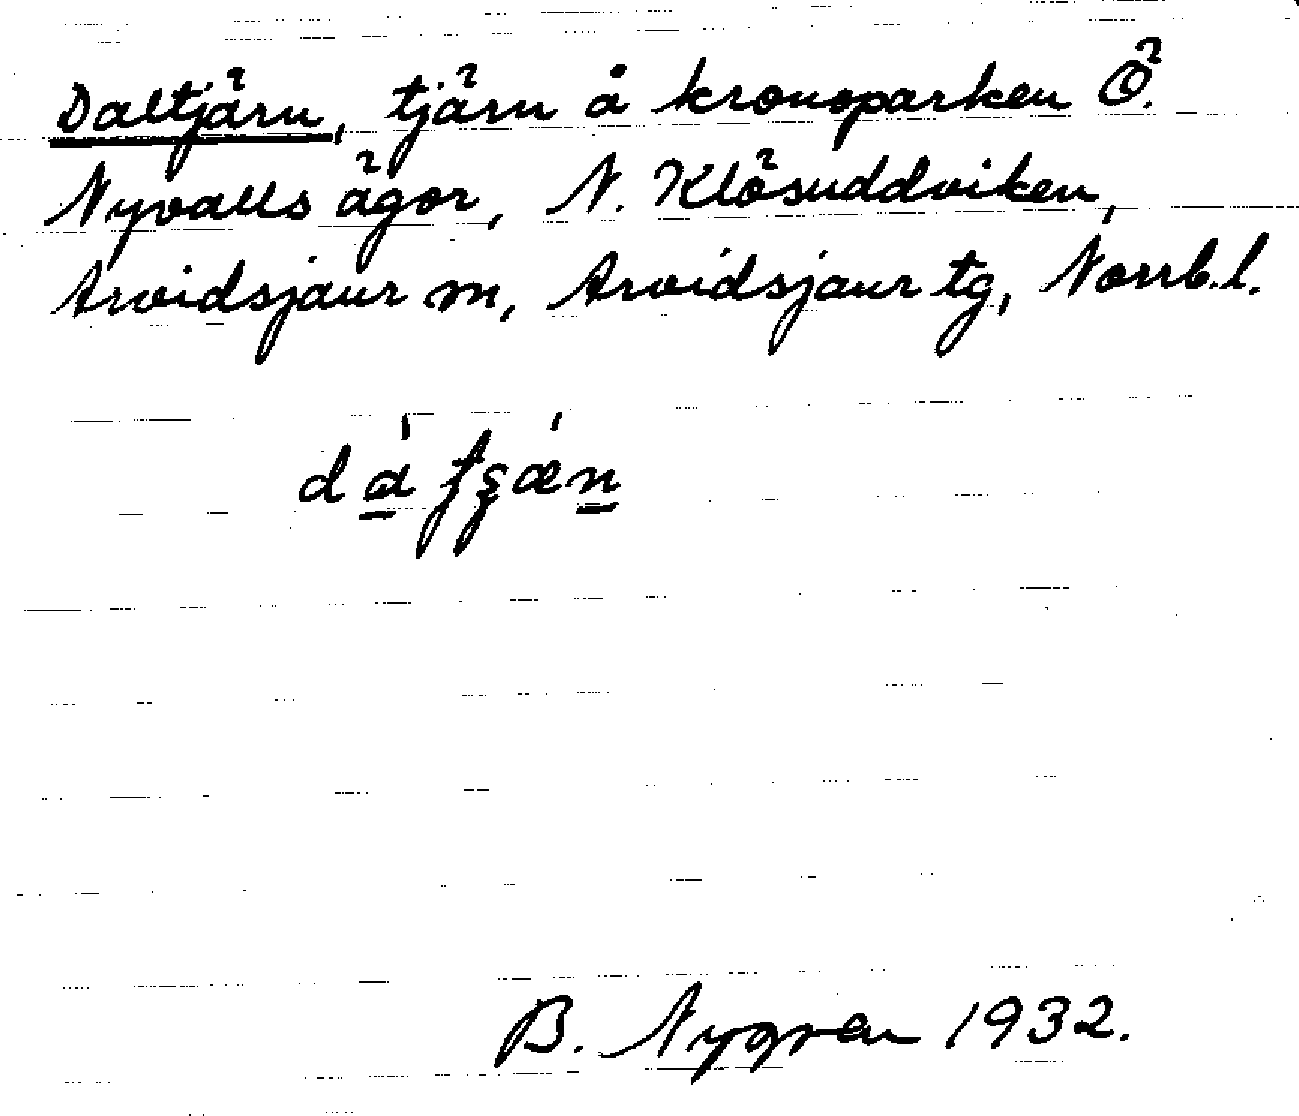 Daltjärn, tjärn å kronoparken Ö.
Nyvalls ägor, N. Klösuddviken,
Arvidsjaur m, Arvidsjaur tg, Norrb.l.
B. Nygren 1932.